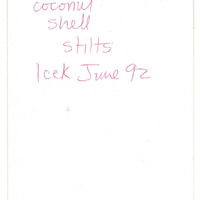 coconut
shell
stilts
Icek June 92